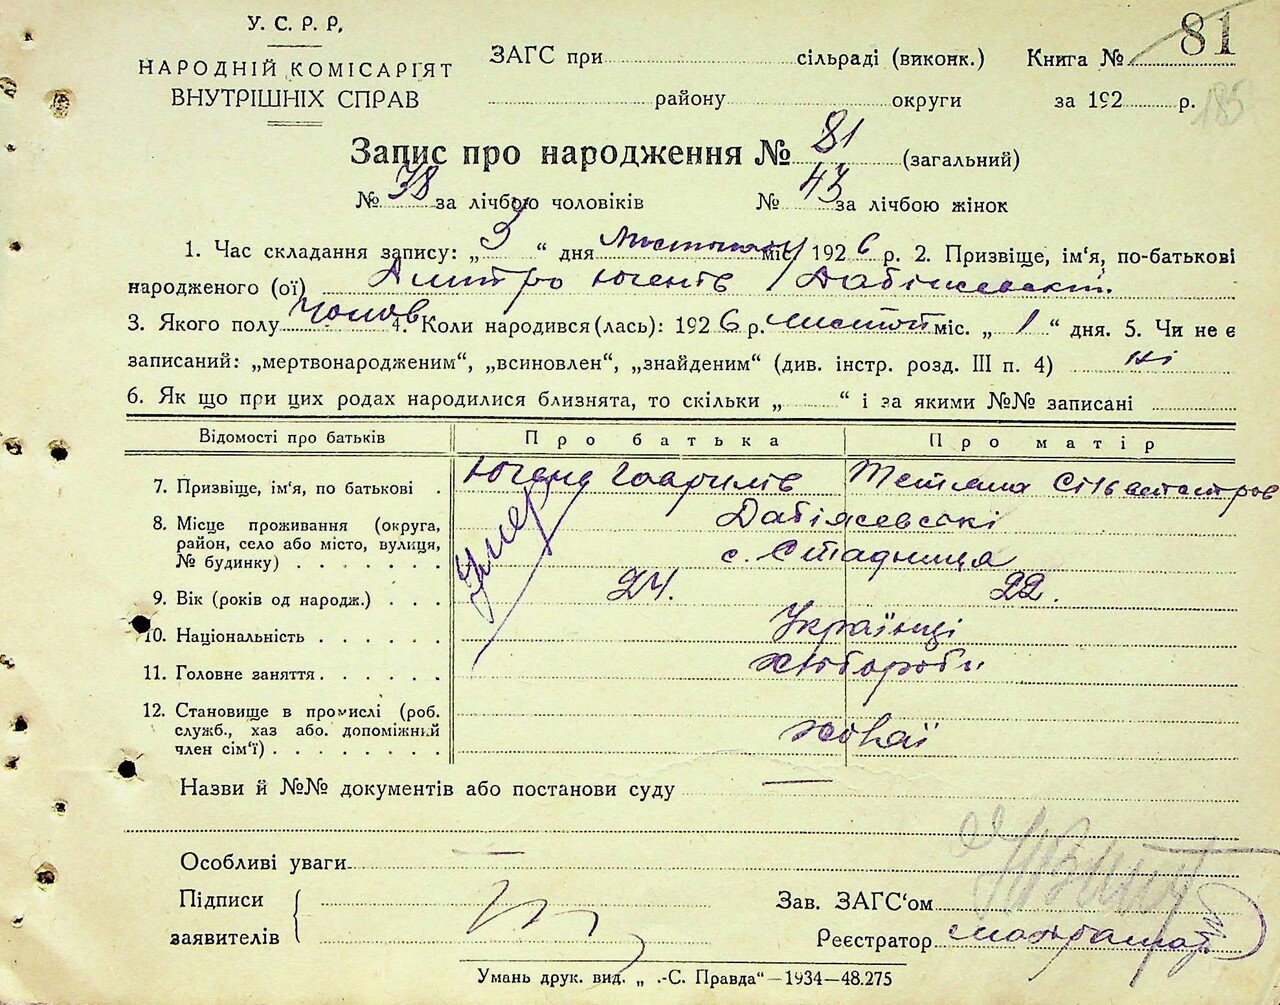 У. С. Р. Р.
НАРОДНІЙ КОМІСАРІЯТ
ВНУТРІШНІХ СПРАВ
ЗАГС при сільраді (виконк.) Книга № 81
району округи за 192 р. 185
Запис про народження № 81 (загальний)
№ 38 за лічбою чоловіків № 43 за лічбою жінок
1. Час складання запису: „ 3 “ дня Листопаду міс. 1926 р. 2. Призвіще, ім'я, по-батькові
народженого (ої) Дмитро Югенів Дабіжевськ
3. Якого полу Чолов 4. Коли народився (лась): 1926 р. листоп міс. „ 1 “ дня. 5. Чи не є
записаний: „мертвонародженим“, „всиновлен“, „знайденим“ (див. інстр. розд. III п. 4) ні
6. Як що при цих родах народилися близнята, то скільки „ “ і за якими №№ записані
Відомості про батьків Про батька Про матір
7. Призвіще, ім'я, по батькові Югена Гаврилів Тетяна Сільвестров
Дабіжевські
8. Місце проживання (округа,
район, село або місто, вулиця,
№ будинку) с. Стадниця
Умер
9. Вік (років од народж.) 24. 22.
10. Національність Українці
11. Головне заняття хлібороби
12. Становище в промислі (роб.
служб., хаз або. допоміжний
член сім'ї) хозяї
Назви й №№ документів або постанови суду —
Особливі уваги —
Підписи
заявителів
Зав. ЗАГС'ом
Реєстратор
Умань друк. вид. „ .-С. Правда“—1934—48.275